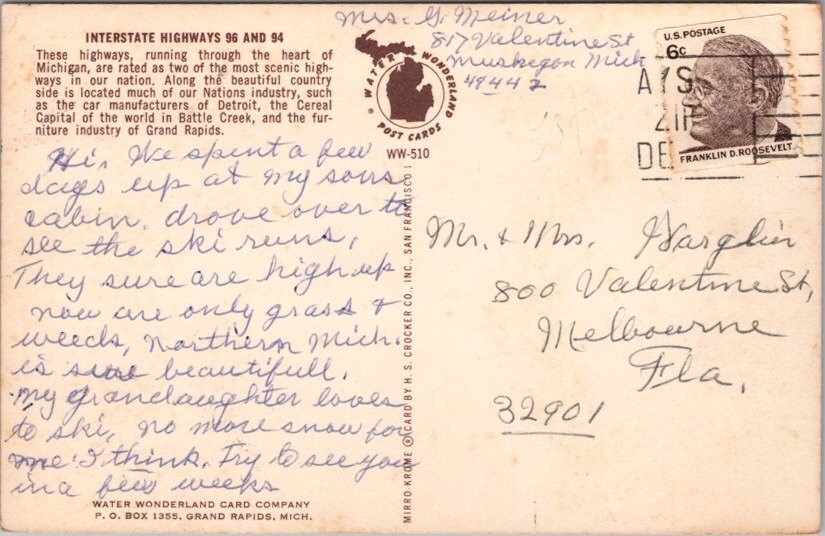 INTERSTATE HIGHWAYS 96 AND 94
These highways, running through the heart of
Michigan, are rated as two of the most scenic high-
ways in our nation. Along the beautiful country
side is located much of our Nations industry, such
as the car manufacturers of Detroit, the Cereal
Capital of the world in Battle Creek, and the fur-
niture industry of Grand Rapids.
Mrs. G. Meiner
817 Valentine St
Muskegon Mich
49442
WATER WONDERLAND
POST CARDS
WW-510
U.S. POSTAGE
6c
FRANKLIN D. ROOSEVELT
AYS
ZIP
DE
Hi, We spent a few
days up at my sons
cabin. drove over to
see the ski runs,
They sure are high up
now are only grass &
weeds, Northern Mich.
is sure beautifull.
My grandaughter loves
to ski, no more snow for
me. I think. Try to see you
in a few weeks
WATER WONDERLAND CARD COMPANY
P. O. BOX 1355, GRAND RAPIDS, MICH.
MIRRO-KROME ® CARD BY H. S. CROCKER CO., INC., SAN FRANCISCO 1
Mr. & Mrs.
800 Valentine St,
Melbourne
Fla,
32901